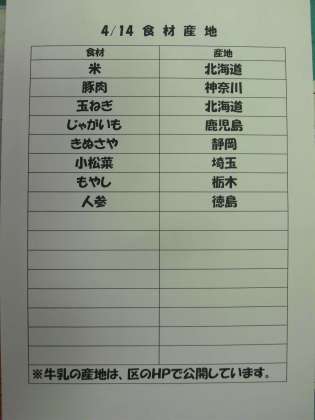 4/14 食材産地
食材 産地
米 北海道
豚肉 神奈川
玉ねぎ 北海道
じゃがいも 鹿児島
きぬさや 静岡
小松菜 埼玉
もやし 栃木
人参 徳島
※牛乳の産地は、区のHPで公開しています。